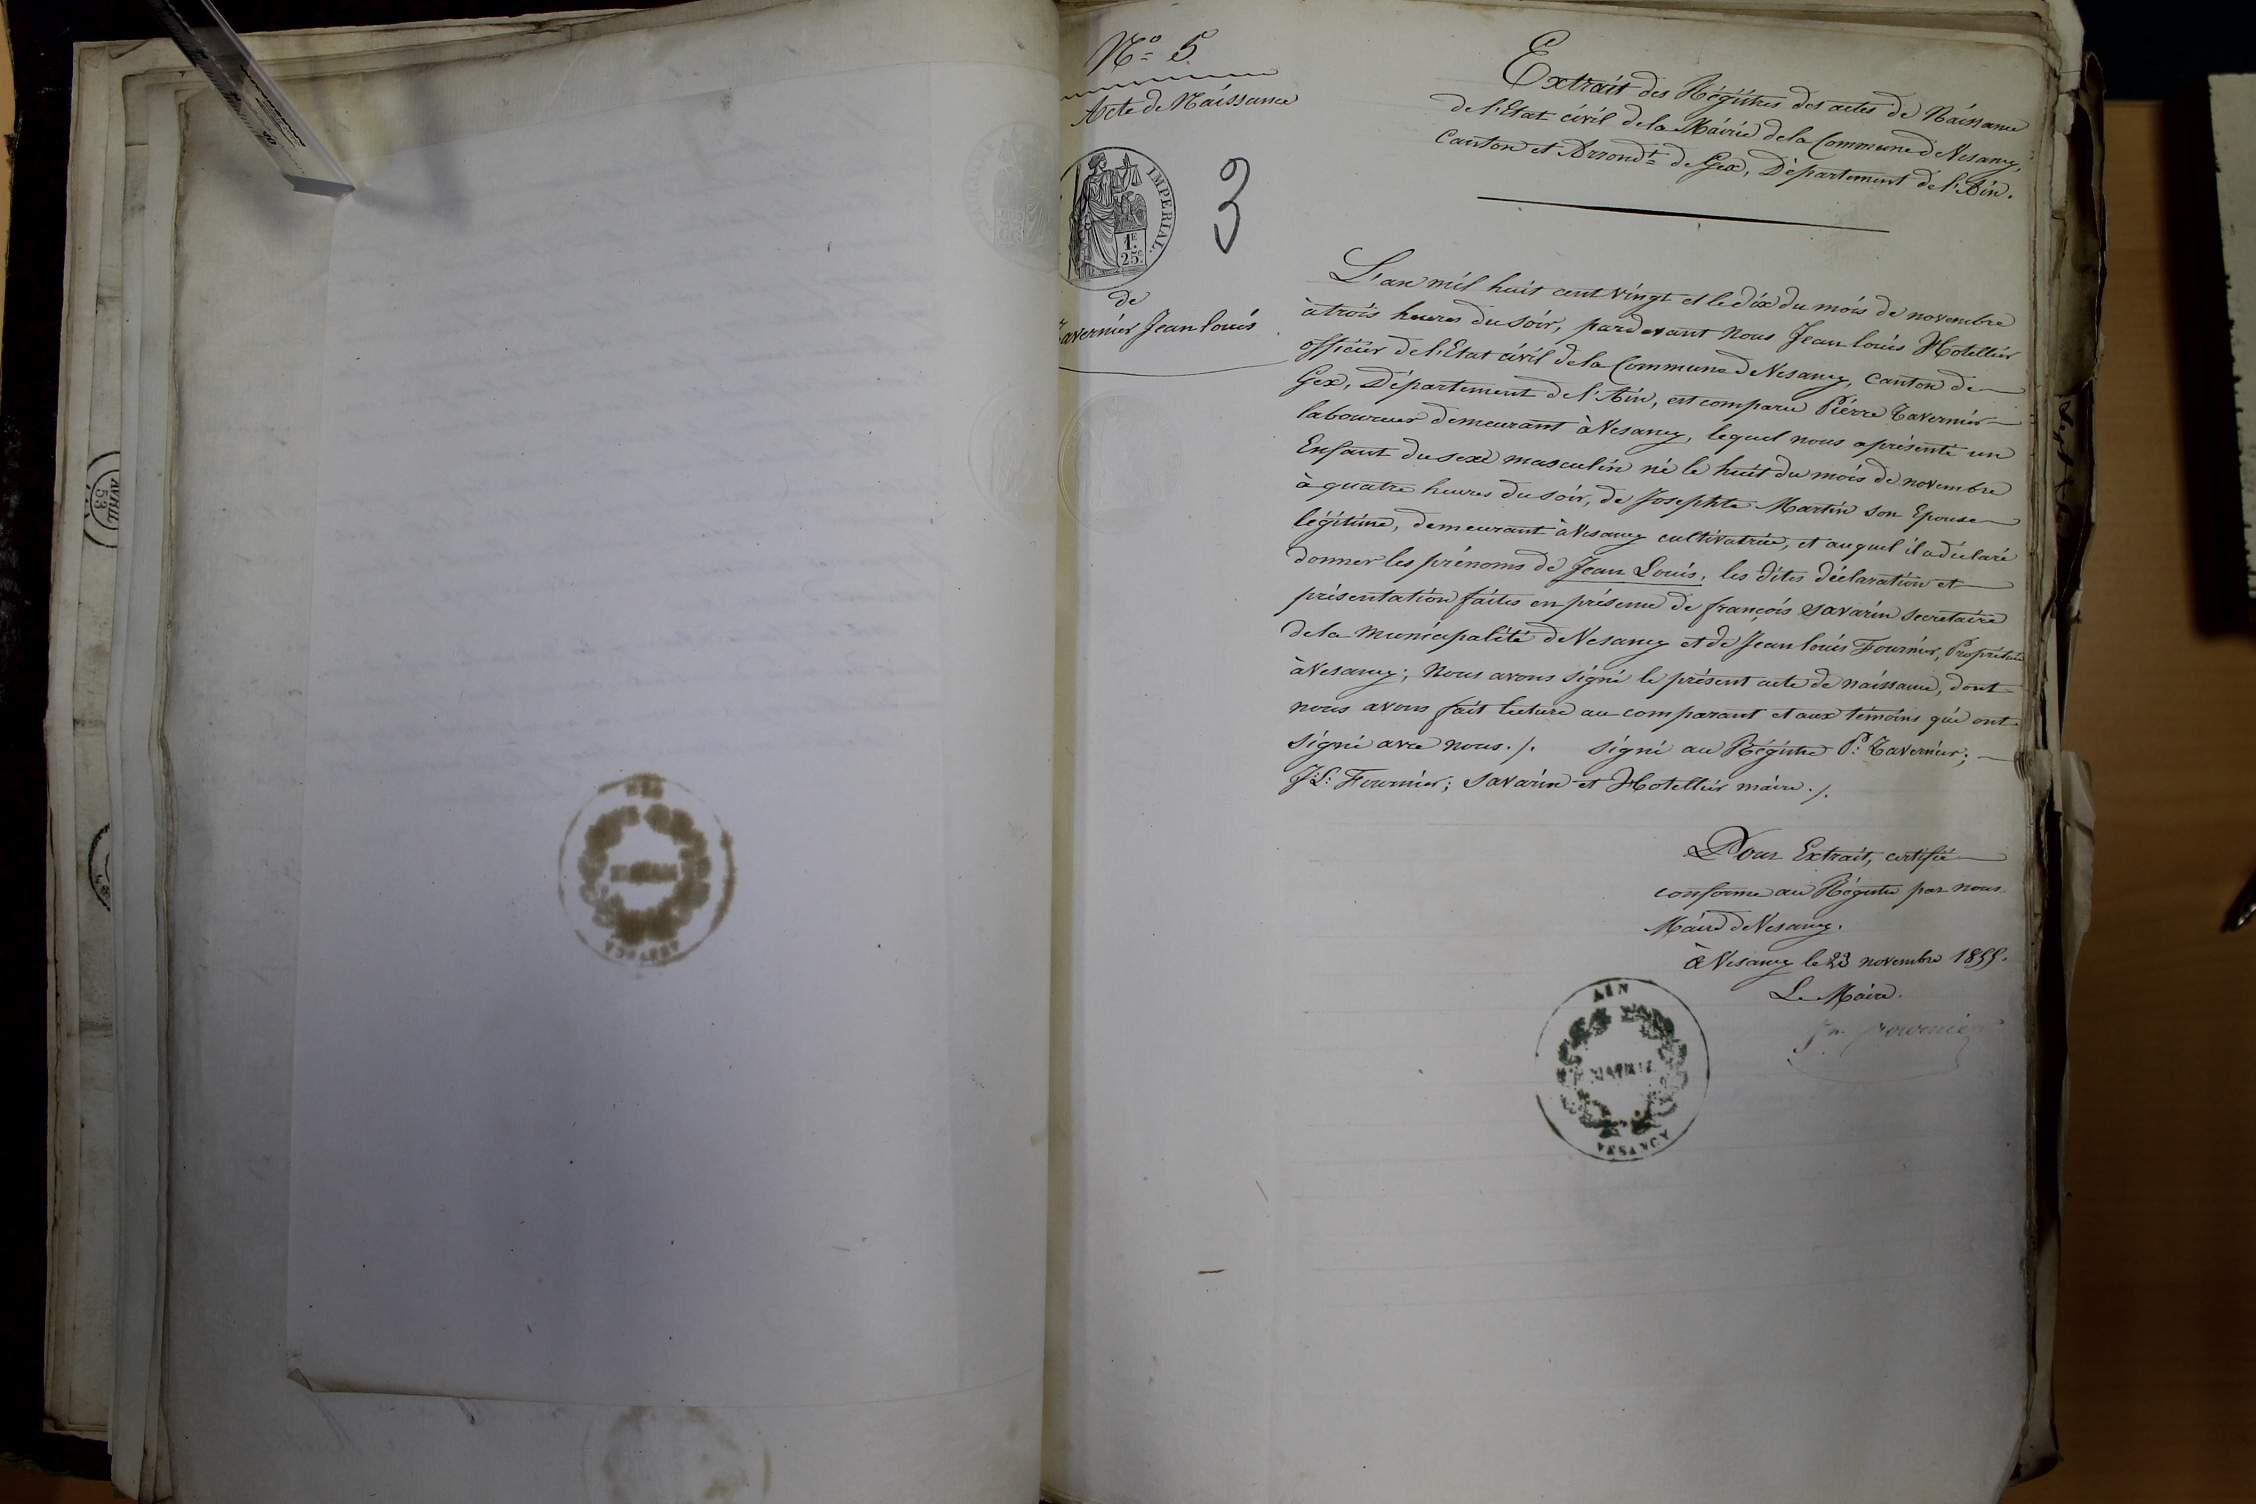 N.º 5.
Acte de Naissance
IMPERIAL.
1F.
25c.
3
de
Tavernier Jean louis
Extrait des Régistres des actes de Naissance
de l'Etat civil de la Mairie de la Commune de Vesancy,
Canton et Arrondt de Gex, Département de l'Ain.
L'an mil huit cent vingt et le dix du mois de novembre
à trois heures du soir, pardevant Nous Jean louis Hotellier
officier de l'Etat civil de la Commune de Vesancy, canton de
Gex, Département de l'Ain, est comparu Pierre Tavernier
laboureur demeurant à Vesancy, lequel nous a présenté un
Enfant du sexe masculin né le huit du mois de novembre
à quatre heures du soir, de Josephte Martin son Epouse
légitime, demeurant à Vesancy cultivatrice, et auquel il a déclaré
donner les prénoms de Jean Louis, les dites déclaration et
présentation faites en présence de françois savarin secretaire
de la Municipalité de Vesancy et de Jean louis Fournier, Propriétaire
à Vesancy; Nous avons signé le présent acte de naissance, dont
nous avons fait lecture au comparant et aux témoins qui ont
signé avec nous. /. signé au Régistre P: Tavernier;
J: L: Fournier; savarin et Hotellier maire. /.
Pour Extrait, certifié
conforme au Régistre par nous
Maire de Vesancy.
à Vesancy le 23 novembre 1855.
Le Maire.
AIN
MAIRIE
VESANCY
AVRIL
53